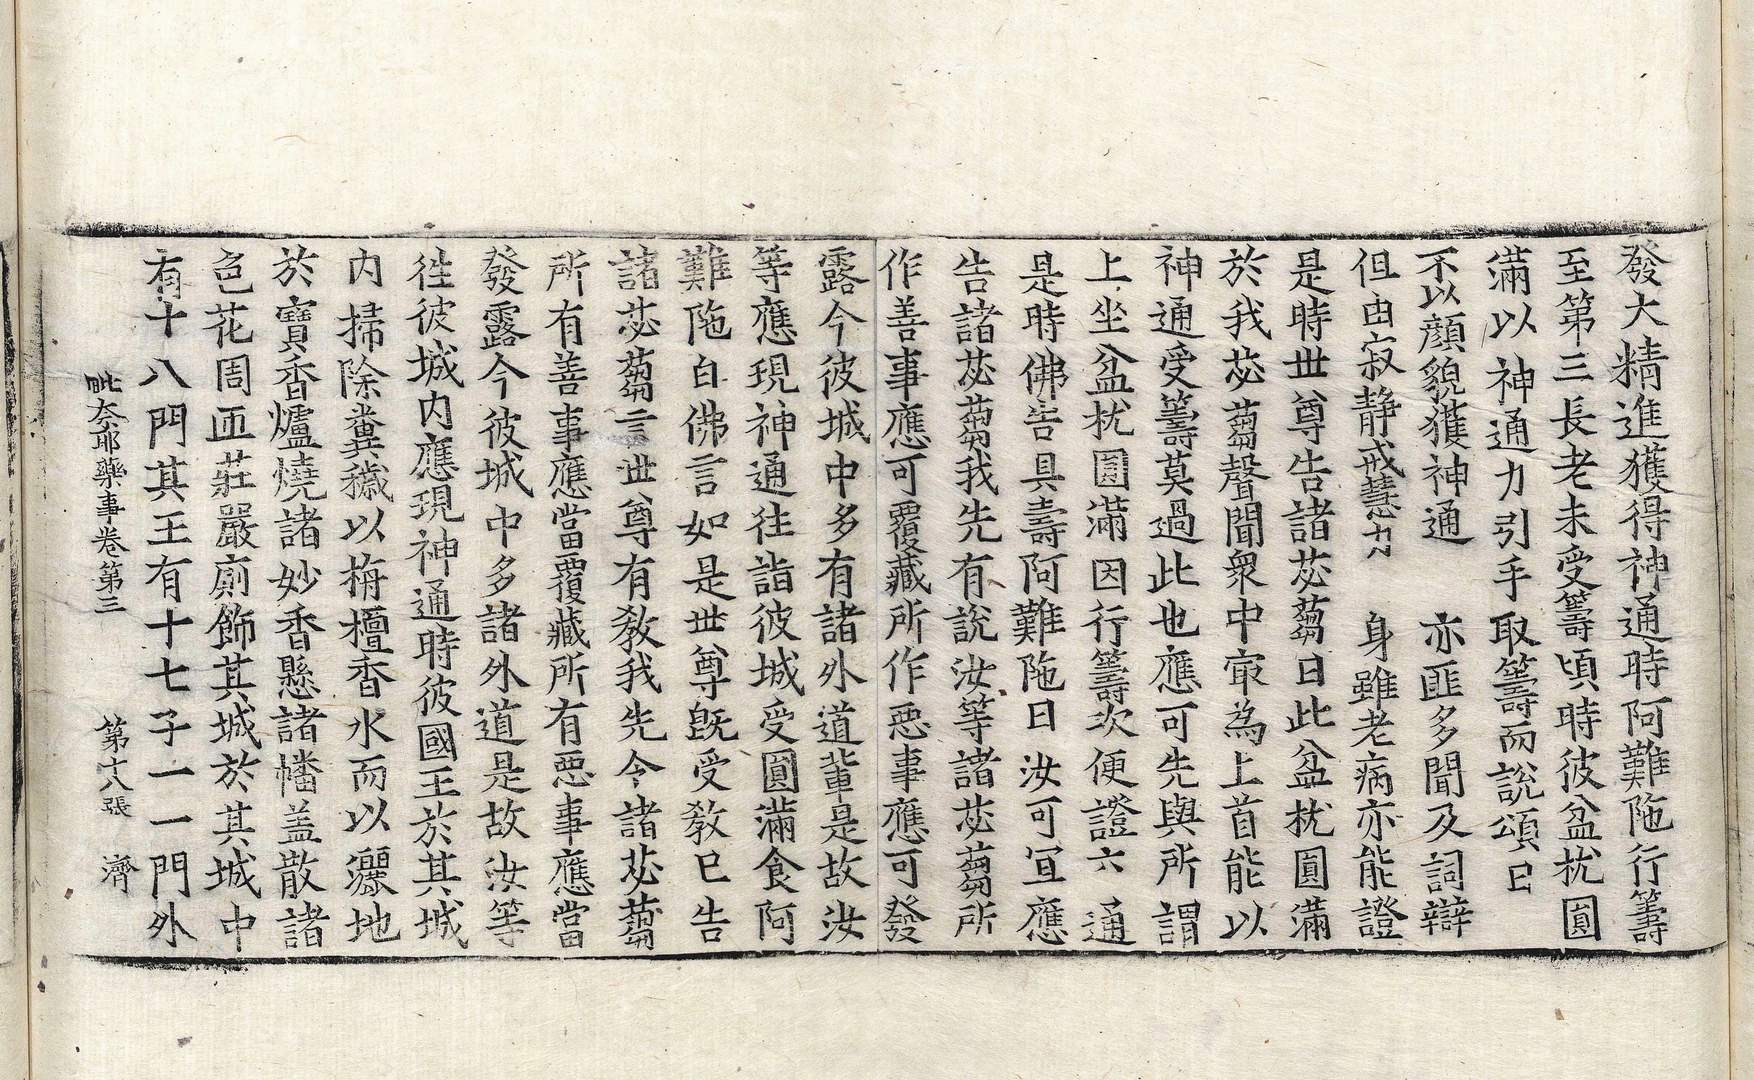 發大精進獲得神通時阿難陁行籌
至第三長老未受籌頃時彼盆扰圓
滿以神通力引手取籌而說頌曰
不以顔貌獲神通　亦匪多聞及詞辯
但由寂静戒慧力　身雖老病亦能證
是時世尊告諸苾蒭曰此盆扰圓滿
於我苾蒭聲聞衆中㝡為上首能以
神通受籌莫過此也應可先與所謂
上坐盆扰圓滿因行籌次便證六通
是時佛告具壽阿難陁曰汝可冝應
告諸苾蒭我先有說汝等諸苾蒭所
作善事應可覆藏所作惡事應可發
露今彼城中多有諸外道軰是故汝
等應現神通往詣彼城受圓滿食阿
難陁白佛言如是世尊旣受敎已告
諸苾蒭言世尊有敎我先令諸苾蒭
所有善事應當覆藏所有惡事應當
發露今彼城中多諸外道是故汝等
徃彼城内應現神通時彼國王於其城
内掃除糞穢以栴檀香水而以灑地
於寶香爐燒諸妙香懸諸幡盖散諸
色花周匝莊嚴廁飾其城於其城中
有十八門其王有十七子一一門外
毗奈耶藥事卷第三　第十八張　濟